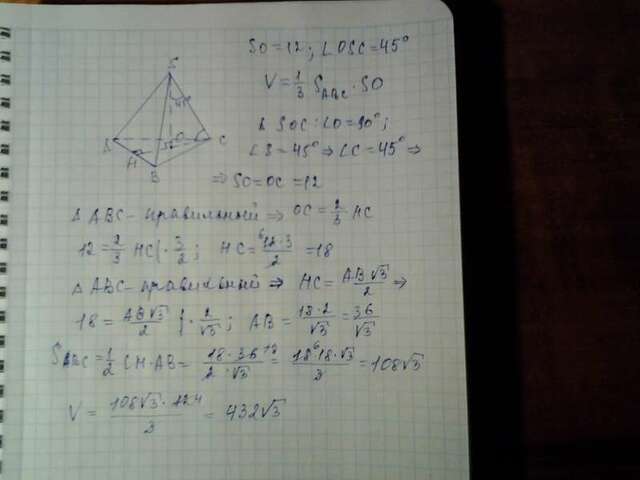 SO=12; ∠OSC=45°
V=1/3 S_ABC · SO
S
45°
A
O
C
H
B
Δ SOC: ∠O=90°;
∠S=45° ⇒ ∠C=45° ⇒
⇒ SO=OC=12
Δ ABC - правильный ⇒ OC=2/3 HC
12=2/3 HC | · 3/2 ; HC= 12·3/2 =18
Δ ABC - правильный ⇒ HC= AB√3/2 ⇒
18= AB√3/2 | · 2/√3 ; AB= 18·2/√3 = 36/√3
S_ABC= 1/2 CH·AB= 18·36/2·√3 = 18·18·√3/3 =108√3
V= 108√3·12/3 = 432√3